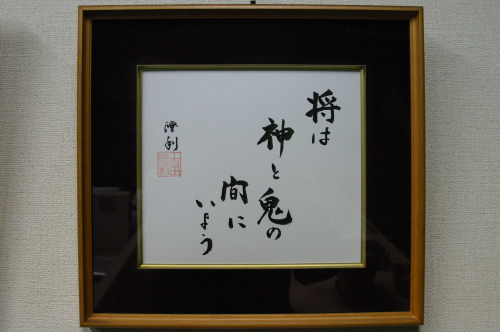 将は
神と鬼の
間に
いよう
澄利